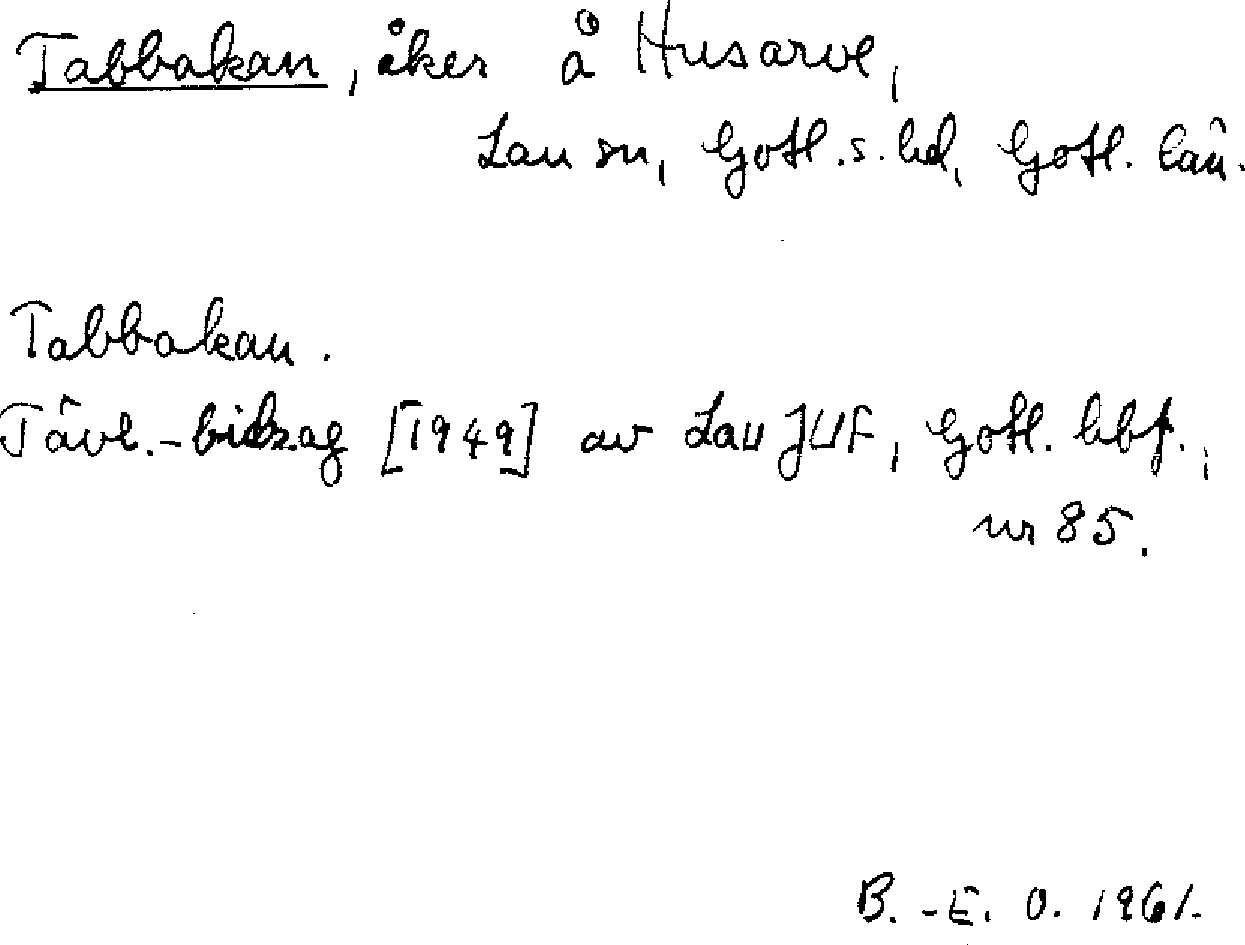 Tabbakan, åker å Husarve,
Lau sn, Gotl. s. hd, Gotl. län.
Tabbakan.
Tävl.-bidrag [1949] av Lau JUF, Gotl. hbf.,
nr 85.
B.-E. O. 1961.